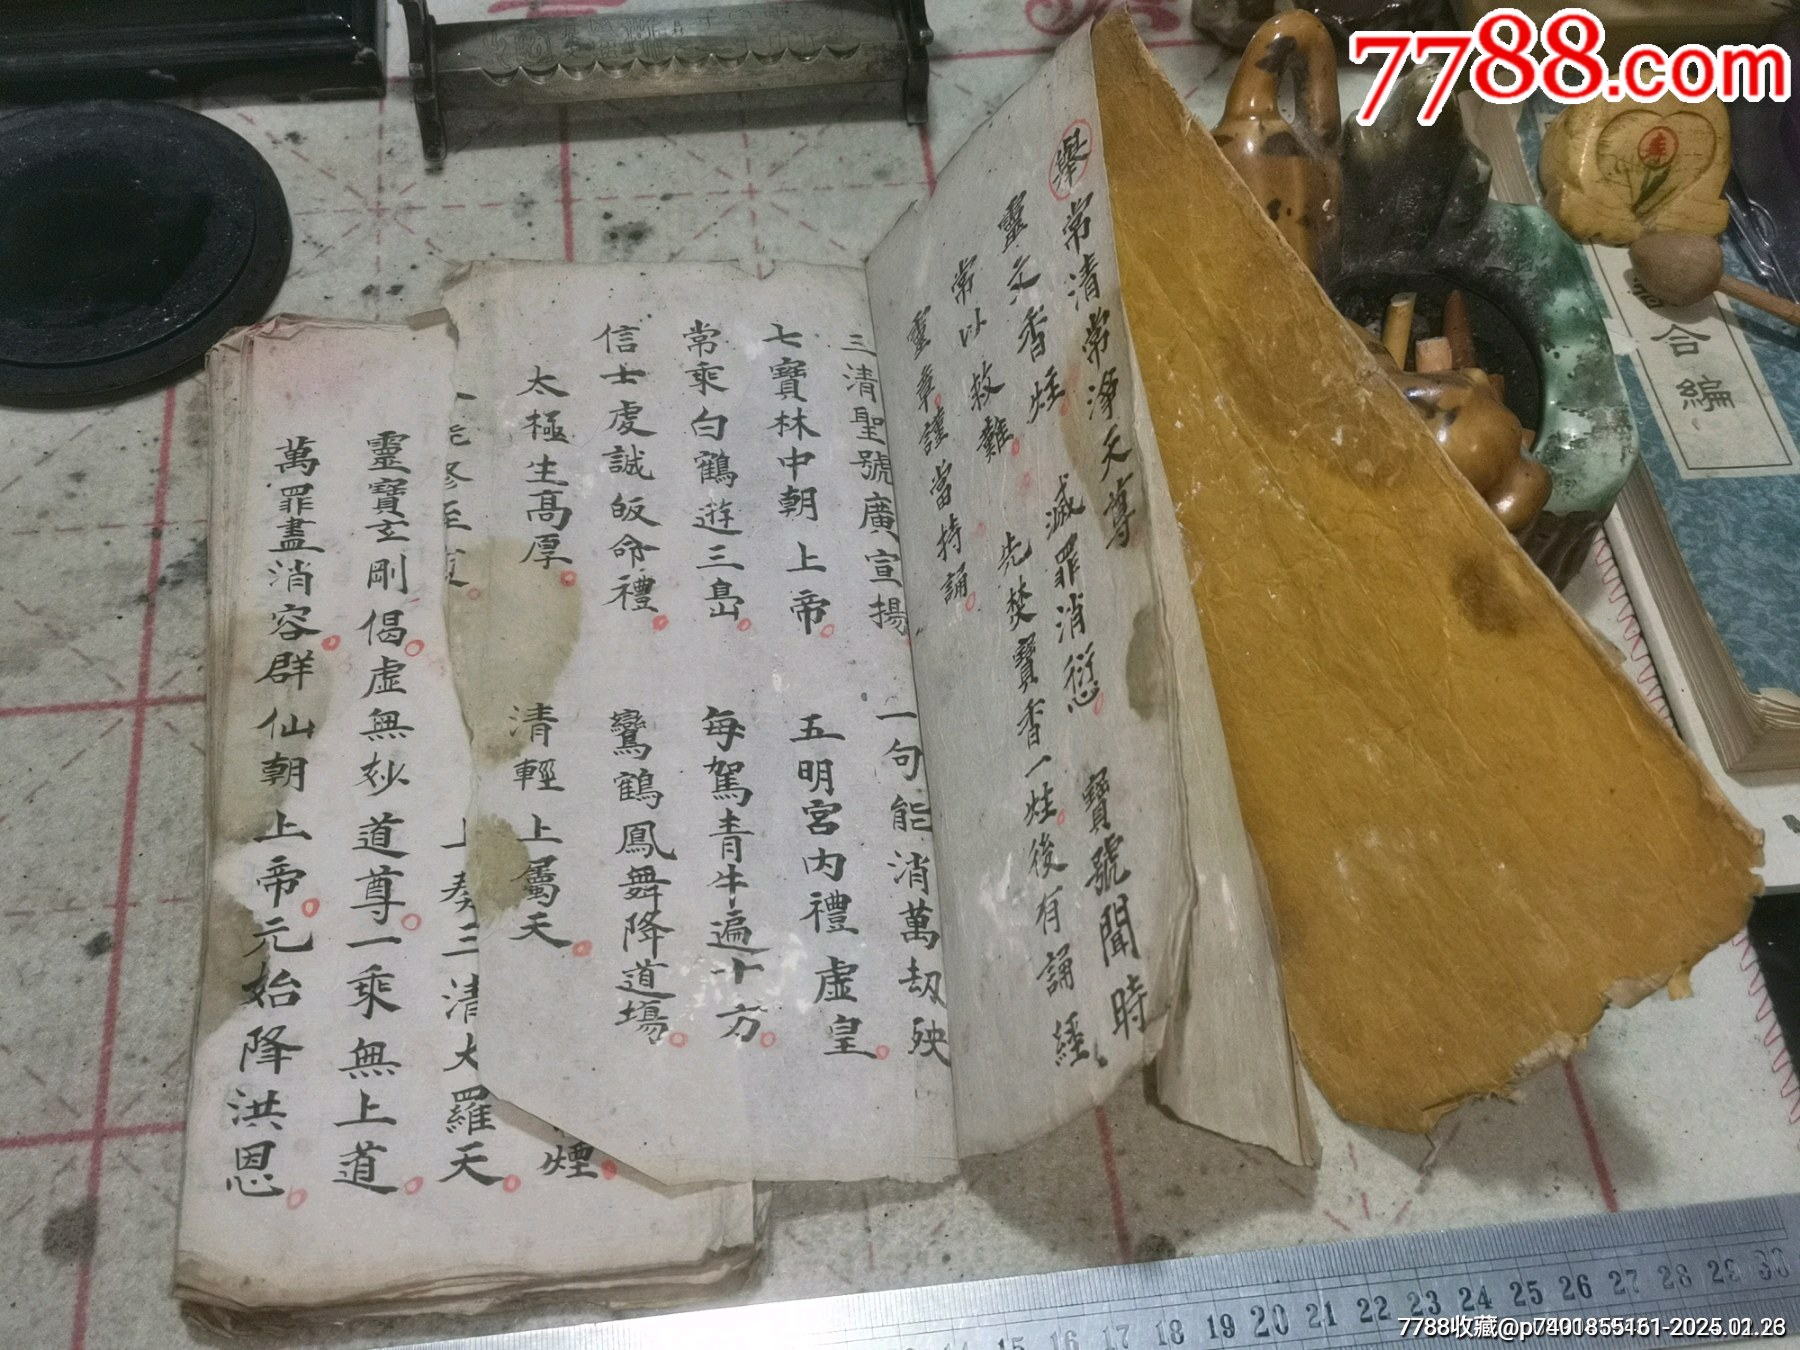 舉 常清常淨天尊
靈元香炷 滅罪消愆 寶號聞時
常以救難 先焚寶香一炷後有誦經
靈章謹當持誦
三清聖號廣宣揚 一句能消萬劫殃
七寶林中朝上帝 五明宮內禮虛皇
常乘白鶴遊三島 每駕青牛遍十方
信士虔誠皈命禮 鸞鶴鳳舞降道場
太極生高厚 清輕上屬天
煙
能修至 上奏三清大羅天
靈寶玄剛偈虛無妙道尊一乘無上道
萬罪盡消容群仙朝上帝元始降洪恩
合編
7788.com
15 16 17 18 19 20 21 22 23 24 25 26 27 28 29 30